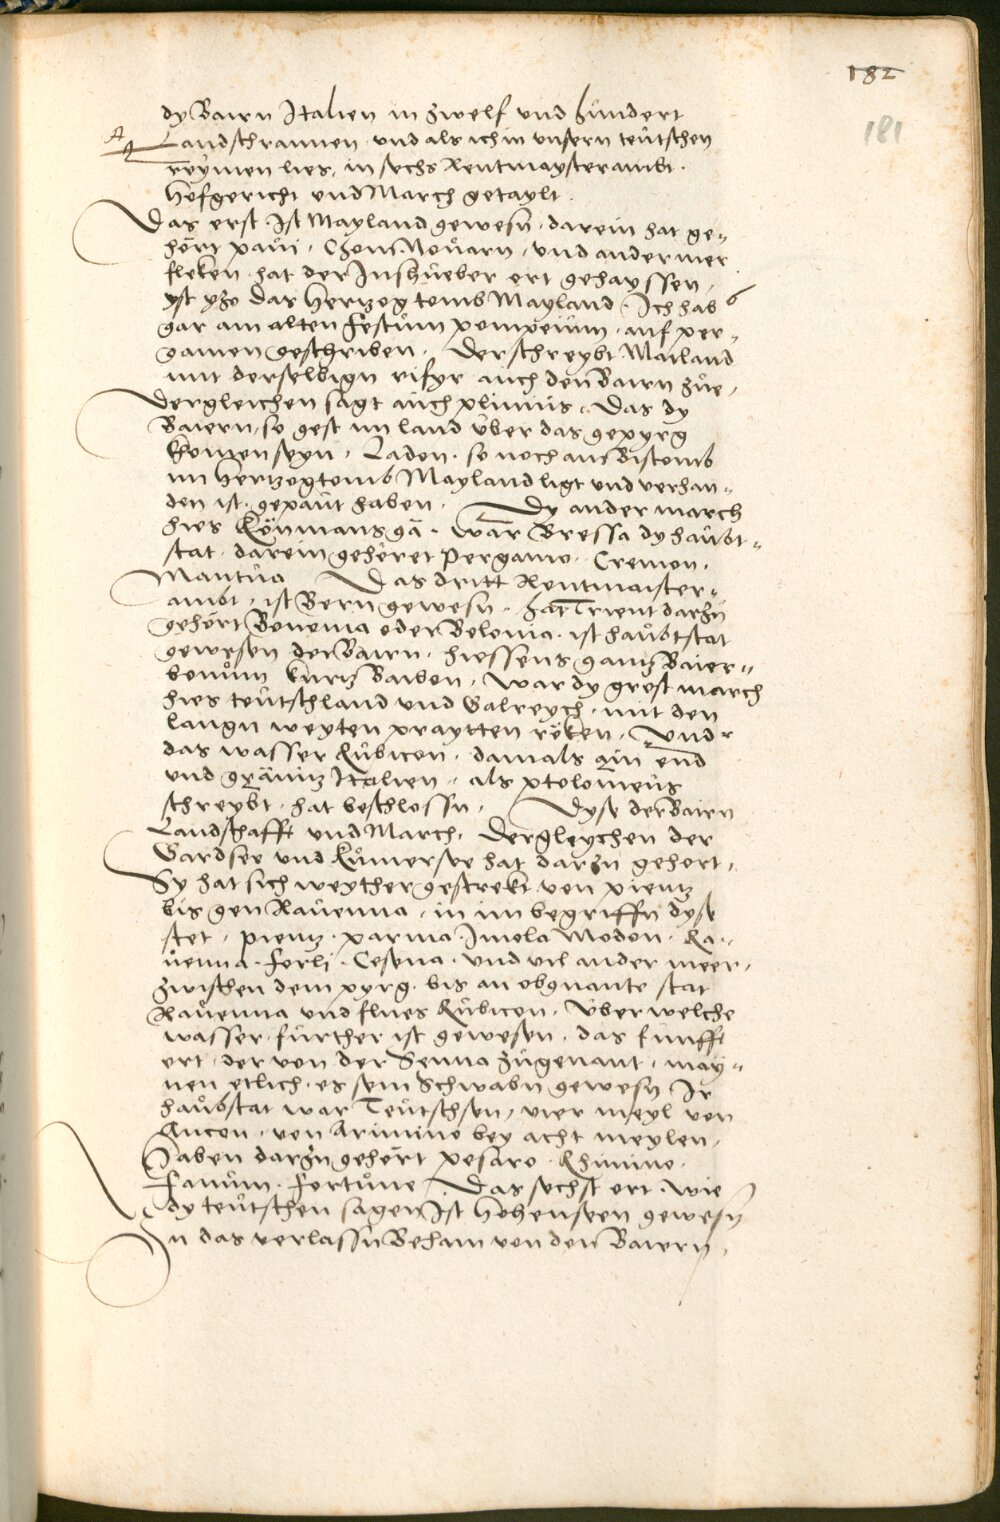 182
181
dy Bairn Italien in zwelf und hundert
A Landschrannen und als ich in unsern teutschen
reymen lies, in sechs Rentmaysterambt.
hofgericht und March getaylt.
Das erst ist Mayland gewesn, darein hat ge„
hört pavi, Chom Novarn, und ander mer
fleken hat der Inshueber ort gehayssen,
yst yzo das Hertzogtomb Mayland. Ich hab
gar ain alten Festum pompeium, auf per„
gamen geschriben. Der schreybt Mailand
mit derselbign rifyr auch den Bairn zue,
Dergleichen sagt auch plinius. Das dy
Baiern, so gest im land über das gepyrg
khomen seyn, Laden, so noch ain Bistomb
im Hertzogtomb Mayland ligt und verhan„
den ist, gepaut haben. Dy ander march
hies Könmans gä. War Bressa dy haubt„
stat, darein gehöret Pergamo, Cremon,
Mantua Das dritt Rentmaister„
ambt, ist Bern gewesn, hat Trient darzu
gehört Bononia oder Bolonia, ist haubtstat
gewesen der Bairn, hiessens gantz Baier„
bonum kurtz Baibon, War dy grost march
hies teutschland und Galreych, mit den
langn weyten praytten röken. Und
das wasser Rubicon, damals ain end
und gränitz Italien, als ptolomeus
schreybt, hat beschlossn. Dyse der Bairn
Landschafft und March. Dergleychen der
Gardsee und Kumersee hat darzu gehort.
Sy hat sich weyther gestrekt von pientz
bis gen Ravenna, in im begriffn dyse
stet, Pientz, parma, Imola Modon, Ra„
venna, Forli, Cesena, und vil ander meer,
zwischen dem pyrg, bis an obgnante stat
Ravenna und flues Rubicon, Uber welche
wasser further ist gewesen, das funfft
ort, der von der Senna zugenant, may„
nen etlich, es sein Schwabn gewesn Ir
haubstat war Teutschsen, vier meyl von
Ancon, von Arimino bey acht meylen,
Haben darzu gehört pesaro, Rhimino,
Fanum, Fortune. Das sechst ort, wie
dy teutschen sagen ist Hohenseen gewesn
In das verlassn Beham von den Baiern,